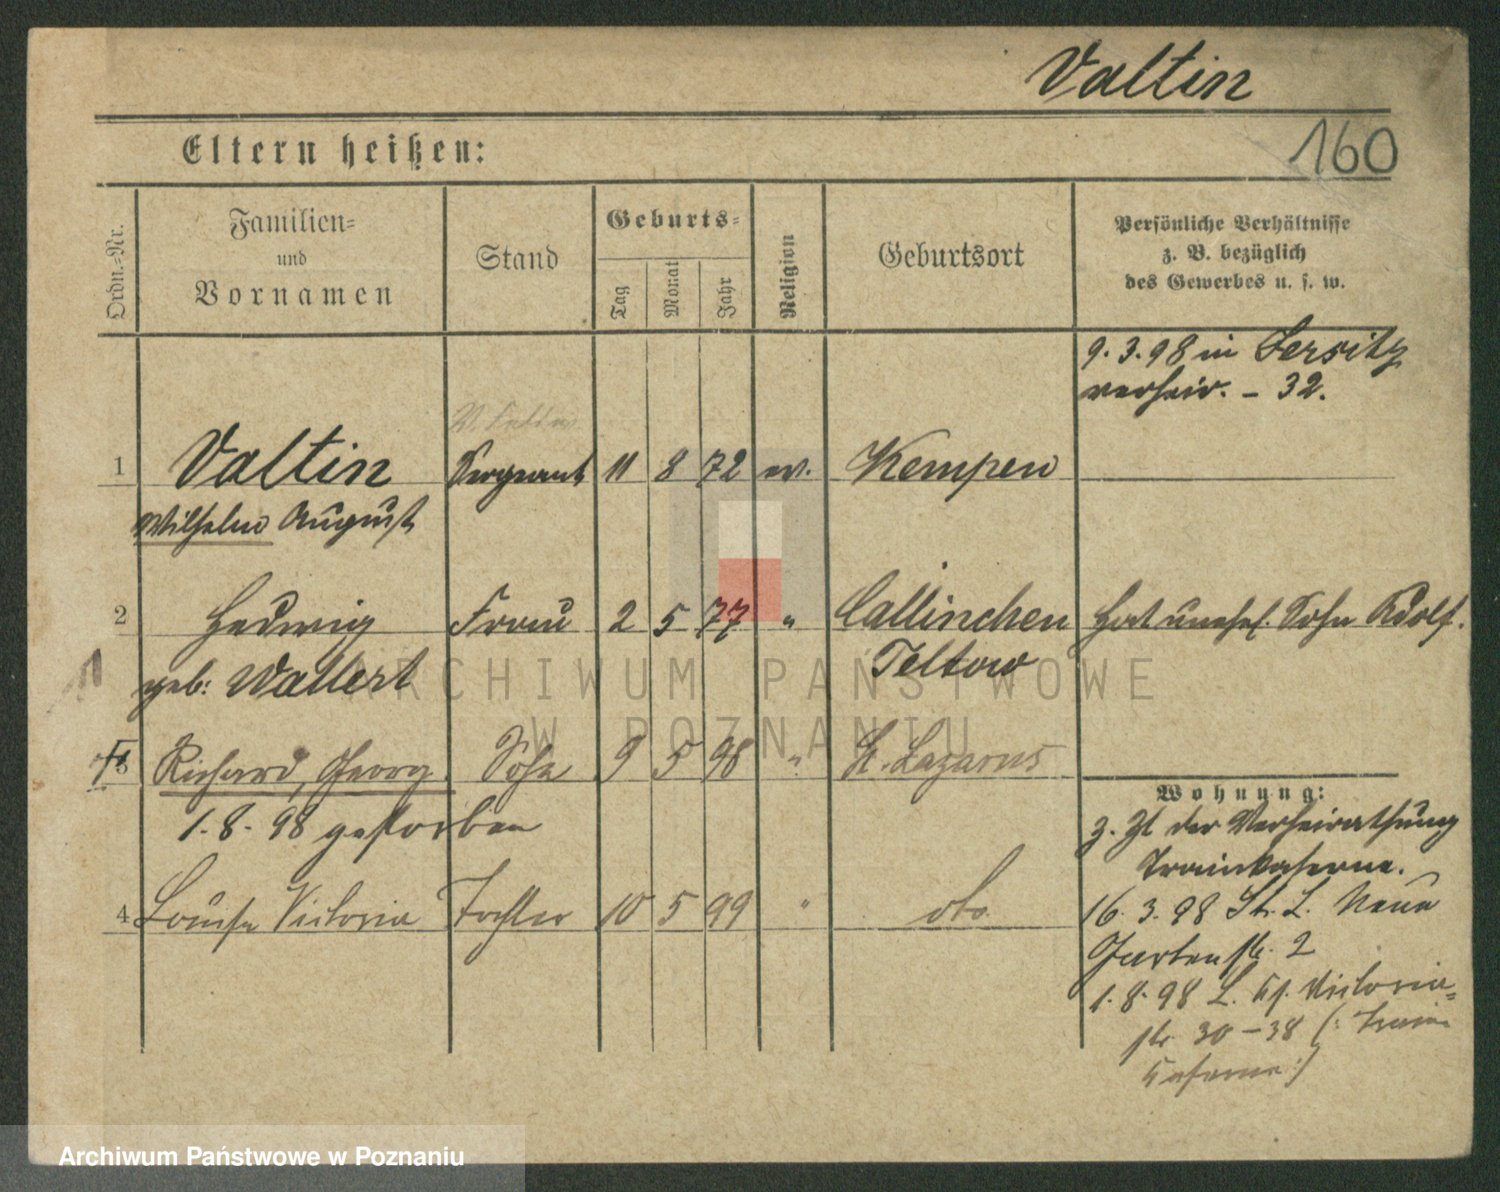 Valtin
160
Eltern heißen:
Ordn.-Nr.
Familien-
und
Vornamen
Stand
Geburts-
Tag
Monat
Jahr
Religion
Geburtsort
Persönliche Verhältnisse
z. B. bezüglich
des Gewerbes u. s. w.
9.3.98 in Jersitz
verheir. - 32.
1 Valtin Sergeant 11 8 72 ev. Kempen
Wilhelm August
2 Hedwig Frau 2 5 77 " Callinchen Hat unehel. Sohn Rudolf.
geb: Wallert Teltow
3 Richard, Georg Sohn 9 5 98 " St. Lazarus
1.8.98 gestorben
4 Louise Victoria Tochter 10 5 99 " dto
Wohnung:
z. Zt der Verheirathung
Trainkaserne.
16.3.98 St. L. Neue
Gartenstr. 2
1.8.98 L. Victoria-
str. 30-38 (: Train
Kaserne :)
ARCHIWUM PAŃSTWOWE
W POZNANIU
Archiwum Państwowe w Poznaniu